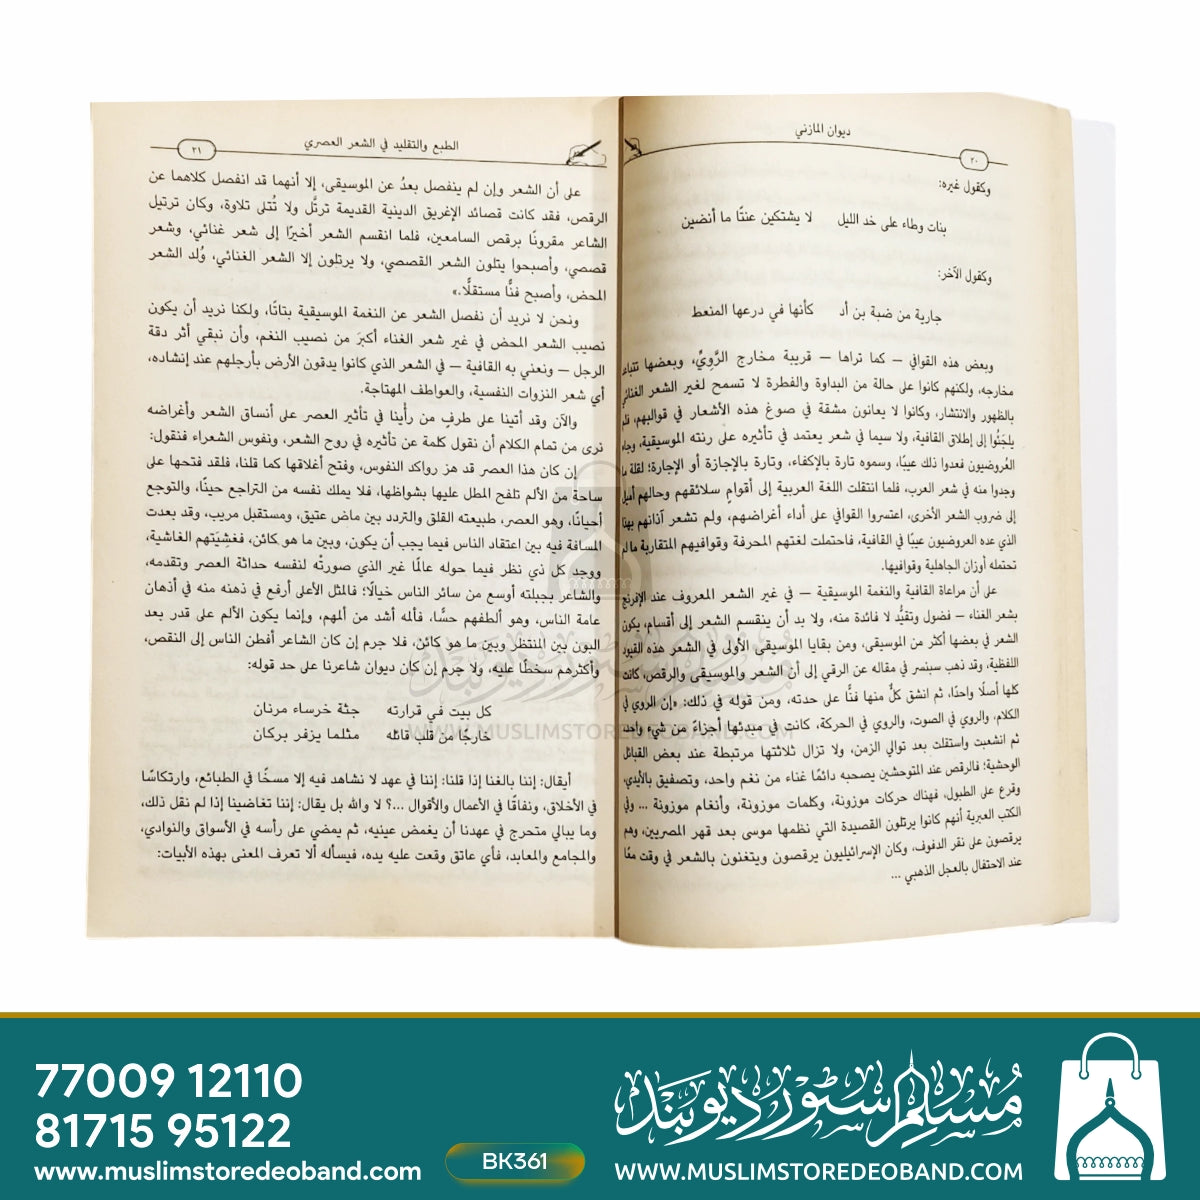 ديوان المازني
٢٠
وكقول غيره:
بنات وطاء على خد الليل لا يشتكين عنتًا ما أنضين
وكقول الآخر:
جارية من ضبة بن أد كأنها في درعها المنعط
وبعض هذه القوافي — كما تراها — قريبة مخارج الرَّوِيِّ، وبعضها تتباعد
مخارجه، ولكنهم كانوا على حالة من البداوة والفطرة لا تسمح لغير الشعر الغنائي
بالظهور والانتشار، وكانوا لا يعانون مشقة في صوغ هذه الأشعار في قوالبهم، فلم
يلجَئُوا إلى إطلاق القافية، ولا سيما في شعر يعتمد في تأثيره على رنته الموسيقية، وجاء
العَروضيون فعدوا ذلك عيبًا، وسموه تارة بالإكفاء، وتارة بالإجازة أو الإجارة؛ لقلة ما
وجدوا منه في شعر العرب، فلما انتقلت اللغة العربية إلى أقوامٍ سلائقهم وحالهم أميل
إلى ضروب الشعر الأخرى، اعتسروا القوافي على أداء أغراضهم، ولم تشعر آذانهم بهذا
الذي عده العروضيون عيبًا في القافية، فاحتملت لغتهم المحرفة وقوافيهم المتقاربة ما لم
تحتمله أوزان الجاهلية وقوافيها.
على أن مراعاة القافية والنغمة الموسيقية — في غير الشعر المعروف عند الإفرنج
بشعر الغناء — فضول وتقيُّد لا فائدة منه، ولا بد أن ينقسم الشعر إلى أقسام، يكون
الشعر في بعضها أكثر من الموسيقى، ومن بقايا الموسيقى الأولى في الشعر هذه القيود
اللفظية، وقد ذهب سبنسر في مقاله عن الرقي إلى أن الشعر والموسيقى والرقص، كانت
كلها أصلًا واحدًا، ثم انشق كلٌّ منها فنًّا على حدته، ومن قوله في ذلك: «إن الروي في
الكلام، والروي في الصوت، والروي في الحركة، كانت في مبدئها أجزاءً من شيء واحد
ثم انشعبت واستقلت بعد توالي الزمن، ولا تزال ثلاثتها مرتبطة عند بعض القبائل
الوحشية؛ فالرقص عند المتوحشين يصحبه دائمًا غناء من نغم واحد، وتصفيق بالأيدي،
وقرع على الطبول، فهناك حركات موزونة، وكلمات موزونة، وأنغام موزونة … وفي
الكتب العبرية أنهم كانوا يرتلون القصيدة التي نظمها موسى بعد قهر المصريين، وهم
يرقصون على نقر الدفوف، وكان الإسرائيليون يرقصون ويتغنون بالشعر في وقت معًا
عند الاحتفال بالعجل الذهبي …
الطبع والتقليد في الشعر العصري
٢١
على أن الشعر وإن لم ينفصل بعدُ عن الموسيقى، إلا أنهما قد انفصل كلاهما عن
الرقص، فقد كانت قصائد الإغريق الدينية القديمة ترتَّل ولا تُتلى تلاوة، وكان ترتيل
الشاعر مقرونًا برقص السامعين، فلما انقسم الشعر أخيرًا إلى شعر غنائي، وشعر
قصصي، وأصبحوا يتلون الشعر القصصي، ولا يرتلون إلا الشعر الغنائي، وُلد الشعر
المحض، وأصبح فنًّا مستقلًّا.»
ونحن لا نريد أن نفصل الشعر عن النغمة الموسيقية بتاتًا، ولكنا نريد أن يكون
نصيب الشعر المحض في غير شعر الغناء أكبرَ من نصيب النغم، وأن نبقي أثر دقة
الرجل — ونعني به القافية — في الشعر الذي كانوا يدقون الأرض بأرجلهم عند إنشاده،
أي شعر النزوات النفسية، والعواطف المهتاجة.
والآن وقد أتينا على طرفٍ من رأْينا في تأثير العصر على أنساق الشعر وأغراضه
نرى من تمام الكلام أن نقول كلمة عن تأثيره في روح الشعر، ونفوس الشعراء فنقول:
إن كان هذا العصر قد هز رواكد النفوس، وفتح أغلاقها كما قلنا، فلقد فتحها على
ساحة من الألم تلفح المطل عليها بشواظها، فلا يملك نفسه من التراجع حينًا، والتوجع
أحيانًا، وهو العصر، طبيعته القلق والتردد بين ماض عتيق، ومستقبل مريب، وقد بعدت
المسافة فيه بين اعتقاد الناس فيما يجب أن يكون، وبين ما هو كائن، فغشِيَتهم الغاشية،
ووجد كل ذي نظر فيما حوله عالمًا غير الذي صورتْه لنفسه حداثة العصر وتقدمه،
والشاعر بجبلته أوسع من سائر الناس خيالًا؛ فالمثل الأعلى أرفع في ذهنه منه في أذهان
عامة الناس، وهو ألطفهم حسًّا، فألمه أشد من ألمهم، وإنما يكون الألم على قدر بعد
البون بين المنتظر وبين ما هو كائن، فلا جرم إن كان الشاعر أفطن الناس إلى النقص،
وأكثرهم سخطًا عليه، ولا جرم إن كان ديوان شاعرنا على حد قوله:
كل بيت في قرارته جثة خرساء مرنان
خارجًا من قلب قائله مثلما يزفر بركان
أيقال: إننا بالغنا إذا قلنا: إننا في عهد لا نشاهد فيه إلا مسخًا في الطبائع، وارتكاسًا
في الأخلاق، ونفاقًا في الأعمال والأقوال …؟ لا والله بل يقال: إننا تغاضينا إذا لم نقل ذلك،
وما يبالي متحرج في عهدنا أن يغمض عينيه، ثم يمضي على رأسه في الأسواق والنوادي،
والمجامع والمعابد، فأي عاتق وقعت عليه يده، فيسأله ألا تعرف المعنى بهذه الأبيات:
مسلم سٹور دیوبند
WWW.MUSLIMSTOREDEOBAND.COM
77009 12110
81715 95122
www.muslimstoredeoband.com
BK361
مسلم سٹور دیوبند
WWW.MUSLIMSTOREDEOBAND.COM